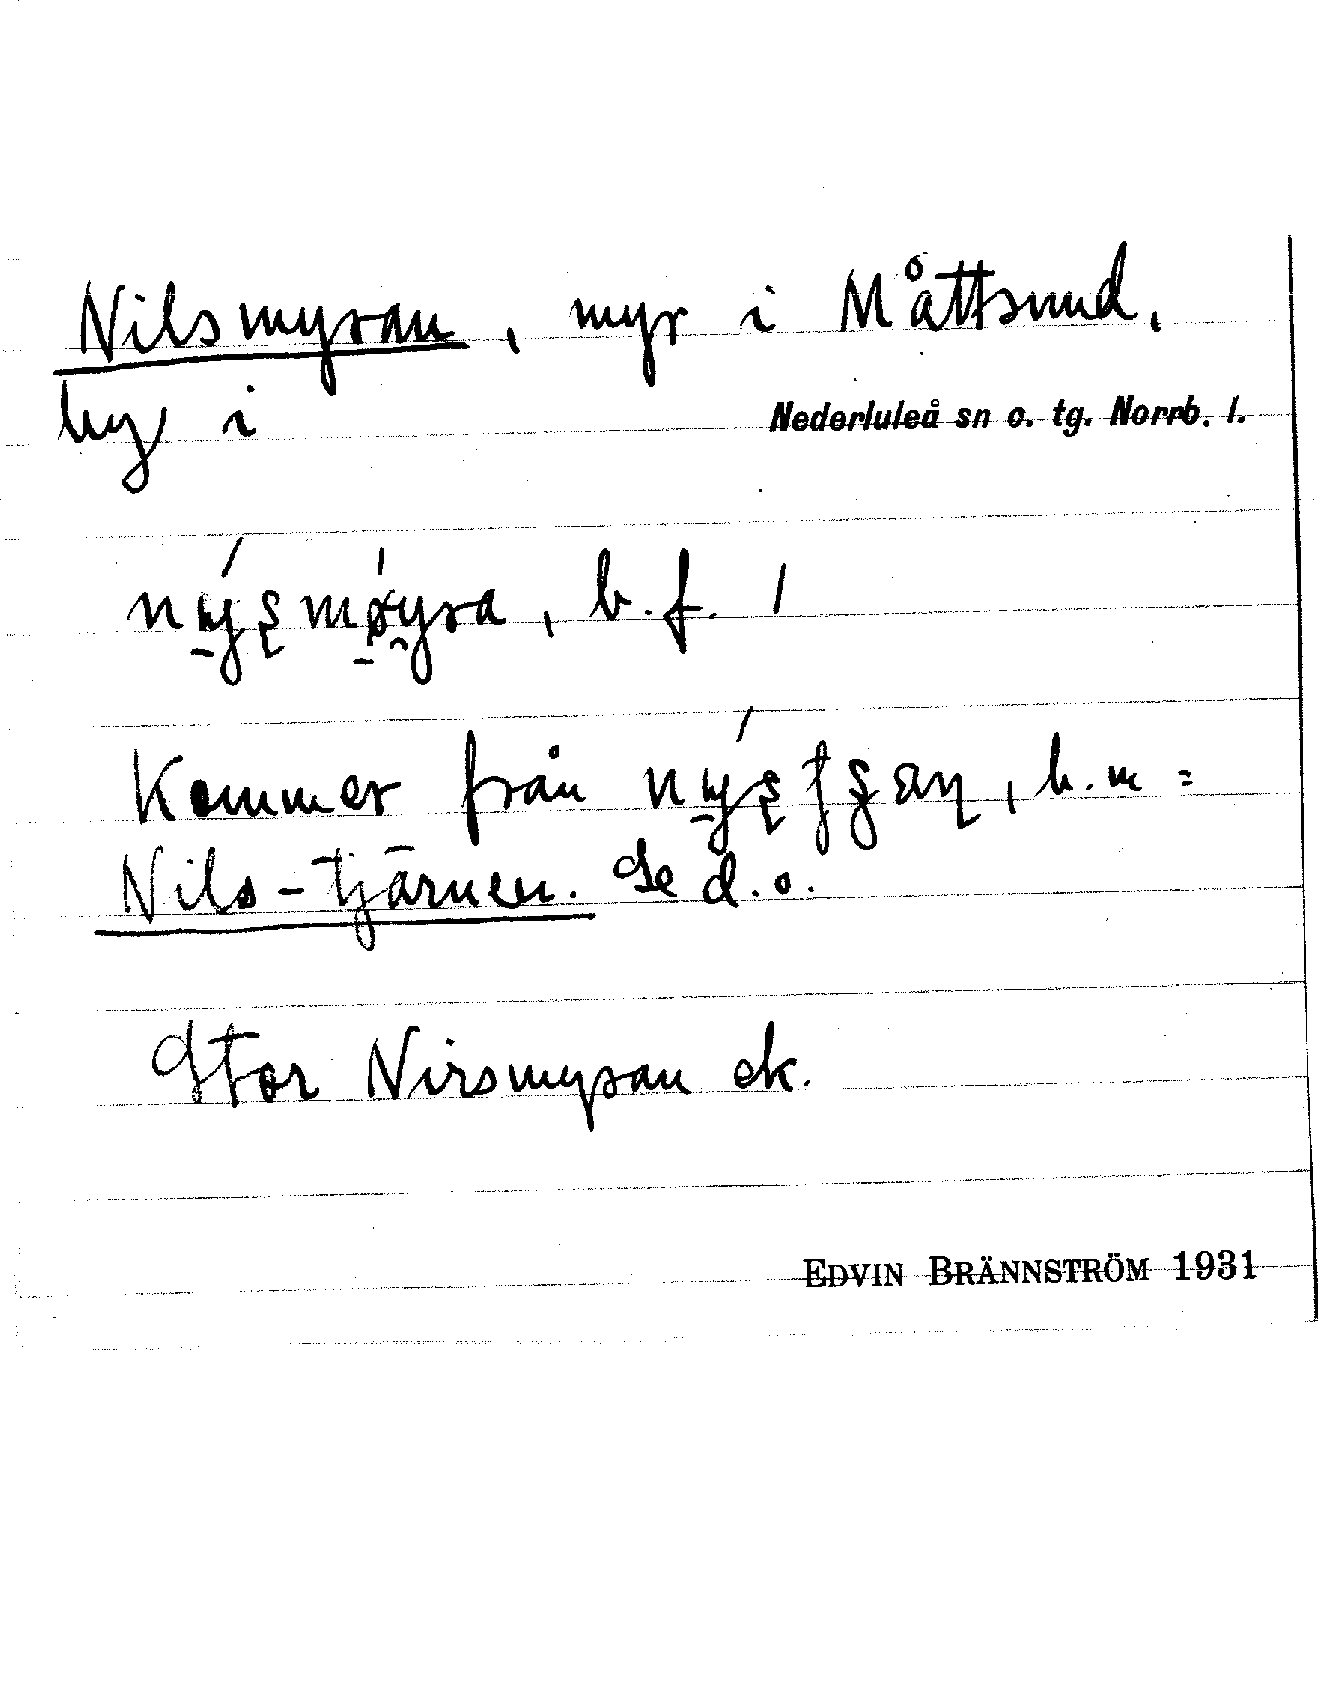 Nilsmyran, myr i Måttsund,
by i Nederluleå sn o. tg. Norrb. l.
b. f. /
Kommer från , b. m =
Nils-tjärnen. Se d. o.
Stor Nirsmyran ek.
EDVIN BRÄNNSTRÖM 1931